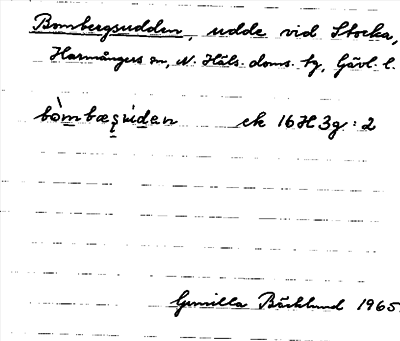 Bombergsudden, udde vid Stocka,
Harmångers sn, N. Häls. doms. tg, Gävl. l.
bòmbæʂùdan ek 16H3g:2
Gunilla Bäcklund 1965.